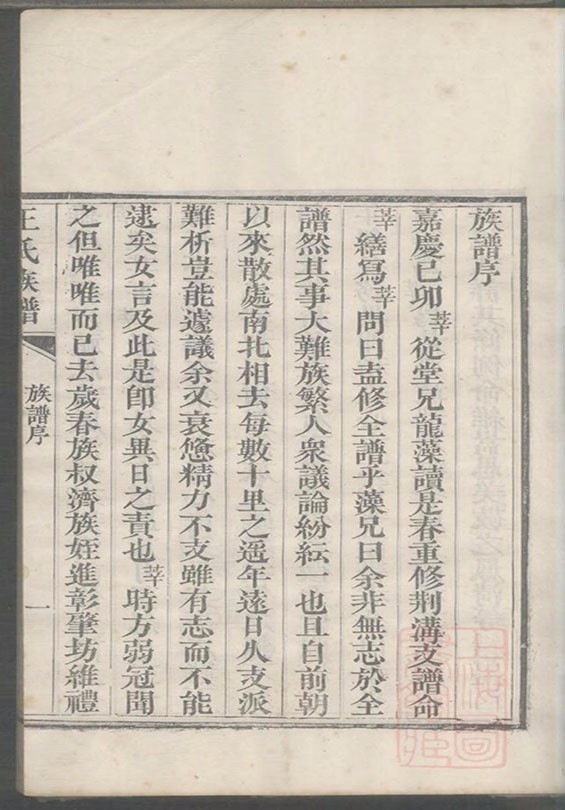 族譜序
嘉慶己卯莘從堂兄龍藻讀是春重修荆溝支譜命
莘繕寫莘問曰盍修全譜乎藻兄曰余非無志於全
譜然其事大難族繁人衆議論紛紜一也且自前朝
以來散處南北相去每數十里之遥年遠日久支派
難析豈能遽議余又衰憊精力不支雖有志而不能
逮矣女言及此是卽女異日之責也莘時方弱冠聞
之但唯唯而已去歲春族叔濟族姪進彰肇坊維禮
王氏族譜
族譜序
一